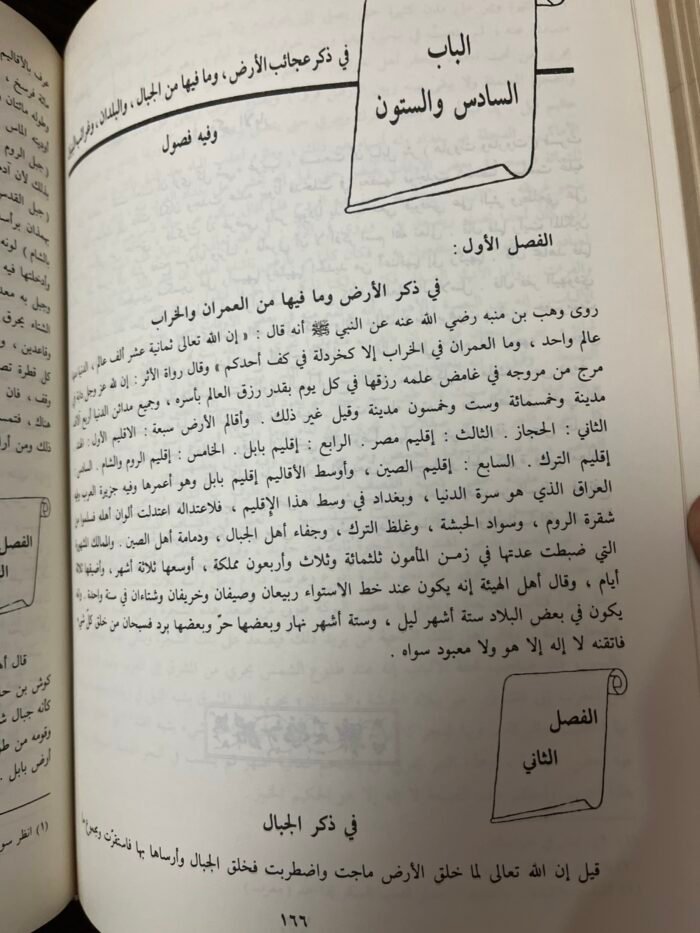 الباب
السادس والستون
في ذكر عجائب الأرض، وما فيها من الجبال، والبلدان، وغرائب
وفيه فصول
الفصل الأول :
في ذكر الأرض وما فيها من العمران والخراب
روى وهب بن منبه رضي الله عنه عن النبي ﷺ أنه قال : « إن الله تعالى ثمانية عشر ألف عالم ، الدنيا منها
عالم واحد ، وما العمران في الخراب إلا كخردلة في كف أحدكم » وقال رواة الأثر : إن لله عز وجل
مرج من مروجه في غامض علمه رزقها في كل يوم بقدر رزق العالم بأسره ، وجميع مدائن الدنيا أربع آلاف
مدينة وخمسمائة وست وخمسون مدينة وقيل غير ذلك . وأقالم الأرض سبعة : الاقليم الأول : الهند
الثاني : الحجاز . الثالث : إقليم مصر . الرابع : إقليم بابل . الخامس : إقليم الروم والشام . السادس
إقليم الترك . السابع : إقليم الصين ، وأوسط الأقاليم إقليم بابل وهو أعمرها وفيه جزيرة العرب وفيه
العراق الذي هو سرة الدنيا ، وبغداد في وسط هذا الإقليم ، فلاعتداله اعتدلت ألوان أهله فسلموا من
شقرة الروم ، وسواد الحبشة ، وغلظ الترك ، وجفاء أهل الجبال ، ودمامة أهل الصين . والممالك المشهورة
التي ضبطت عدتها في زمـن المأمون ثلثمائة وثلاث وأربعون مملكة ، أوسعها ثلاثة أشهر ، وأضيقها ثلاثة
أيام ، وقال أهل الهيئة إنه يكون عند خط الاستواء ربيعان وصيفان وخريفان وشتاءان في سنة واحدة .
يكون في بعض البلاد ستة أشهر ليل ، وستة أشهر نهار وبعضها حرّ وبعضها برد فسبحان من خلق كلّ شيء
فاتقنه لا إله إلا هو ولا معبود سواه .
الفصل
الثاني
في ذكر الجبال
قيل إن الله تعالى لما خلق الأرض ماجت واضطربت فخلق الجبال وأرساها بها فاستقرّت ومجموع ما
١٦٦
عرف بالأقاليم
مائة فرسخ ،
وطوله مائتان
أودية الماس
( جبل الروم
بذلك لان آدم
( جبل القدس
بالشام ) لونه
وأدخلتها فيه
وجبل به
الشتاء يحرق
وقاعدين ،
كل قطرة
وقف ، فان
هناك ،
ذلك ومن
الفصل
قال
كوش بن
كأنه جبال
وقومه من
أرض بابل .
(١) انظر